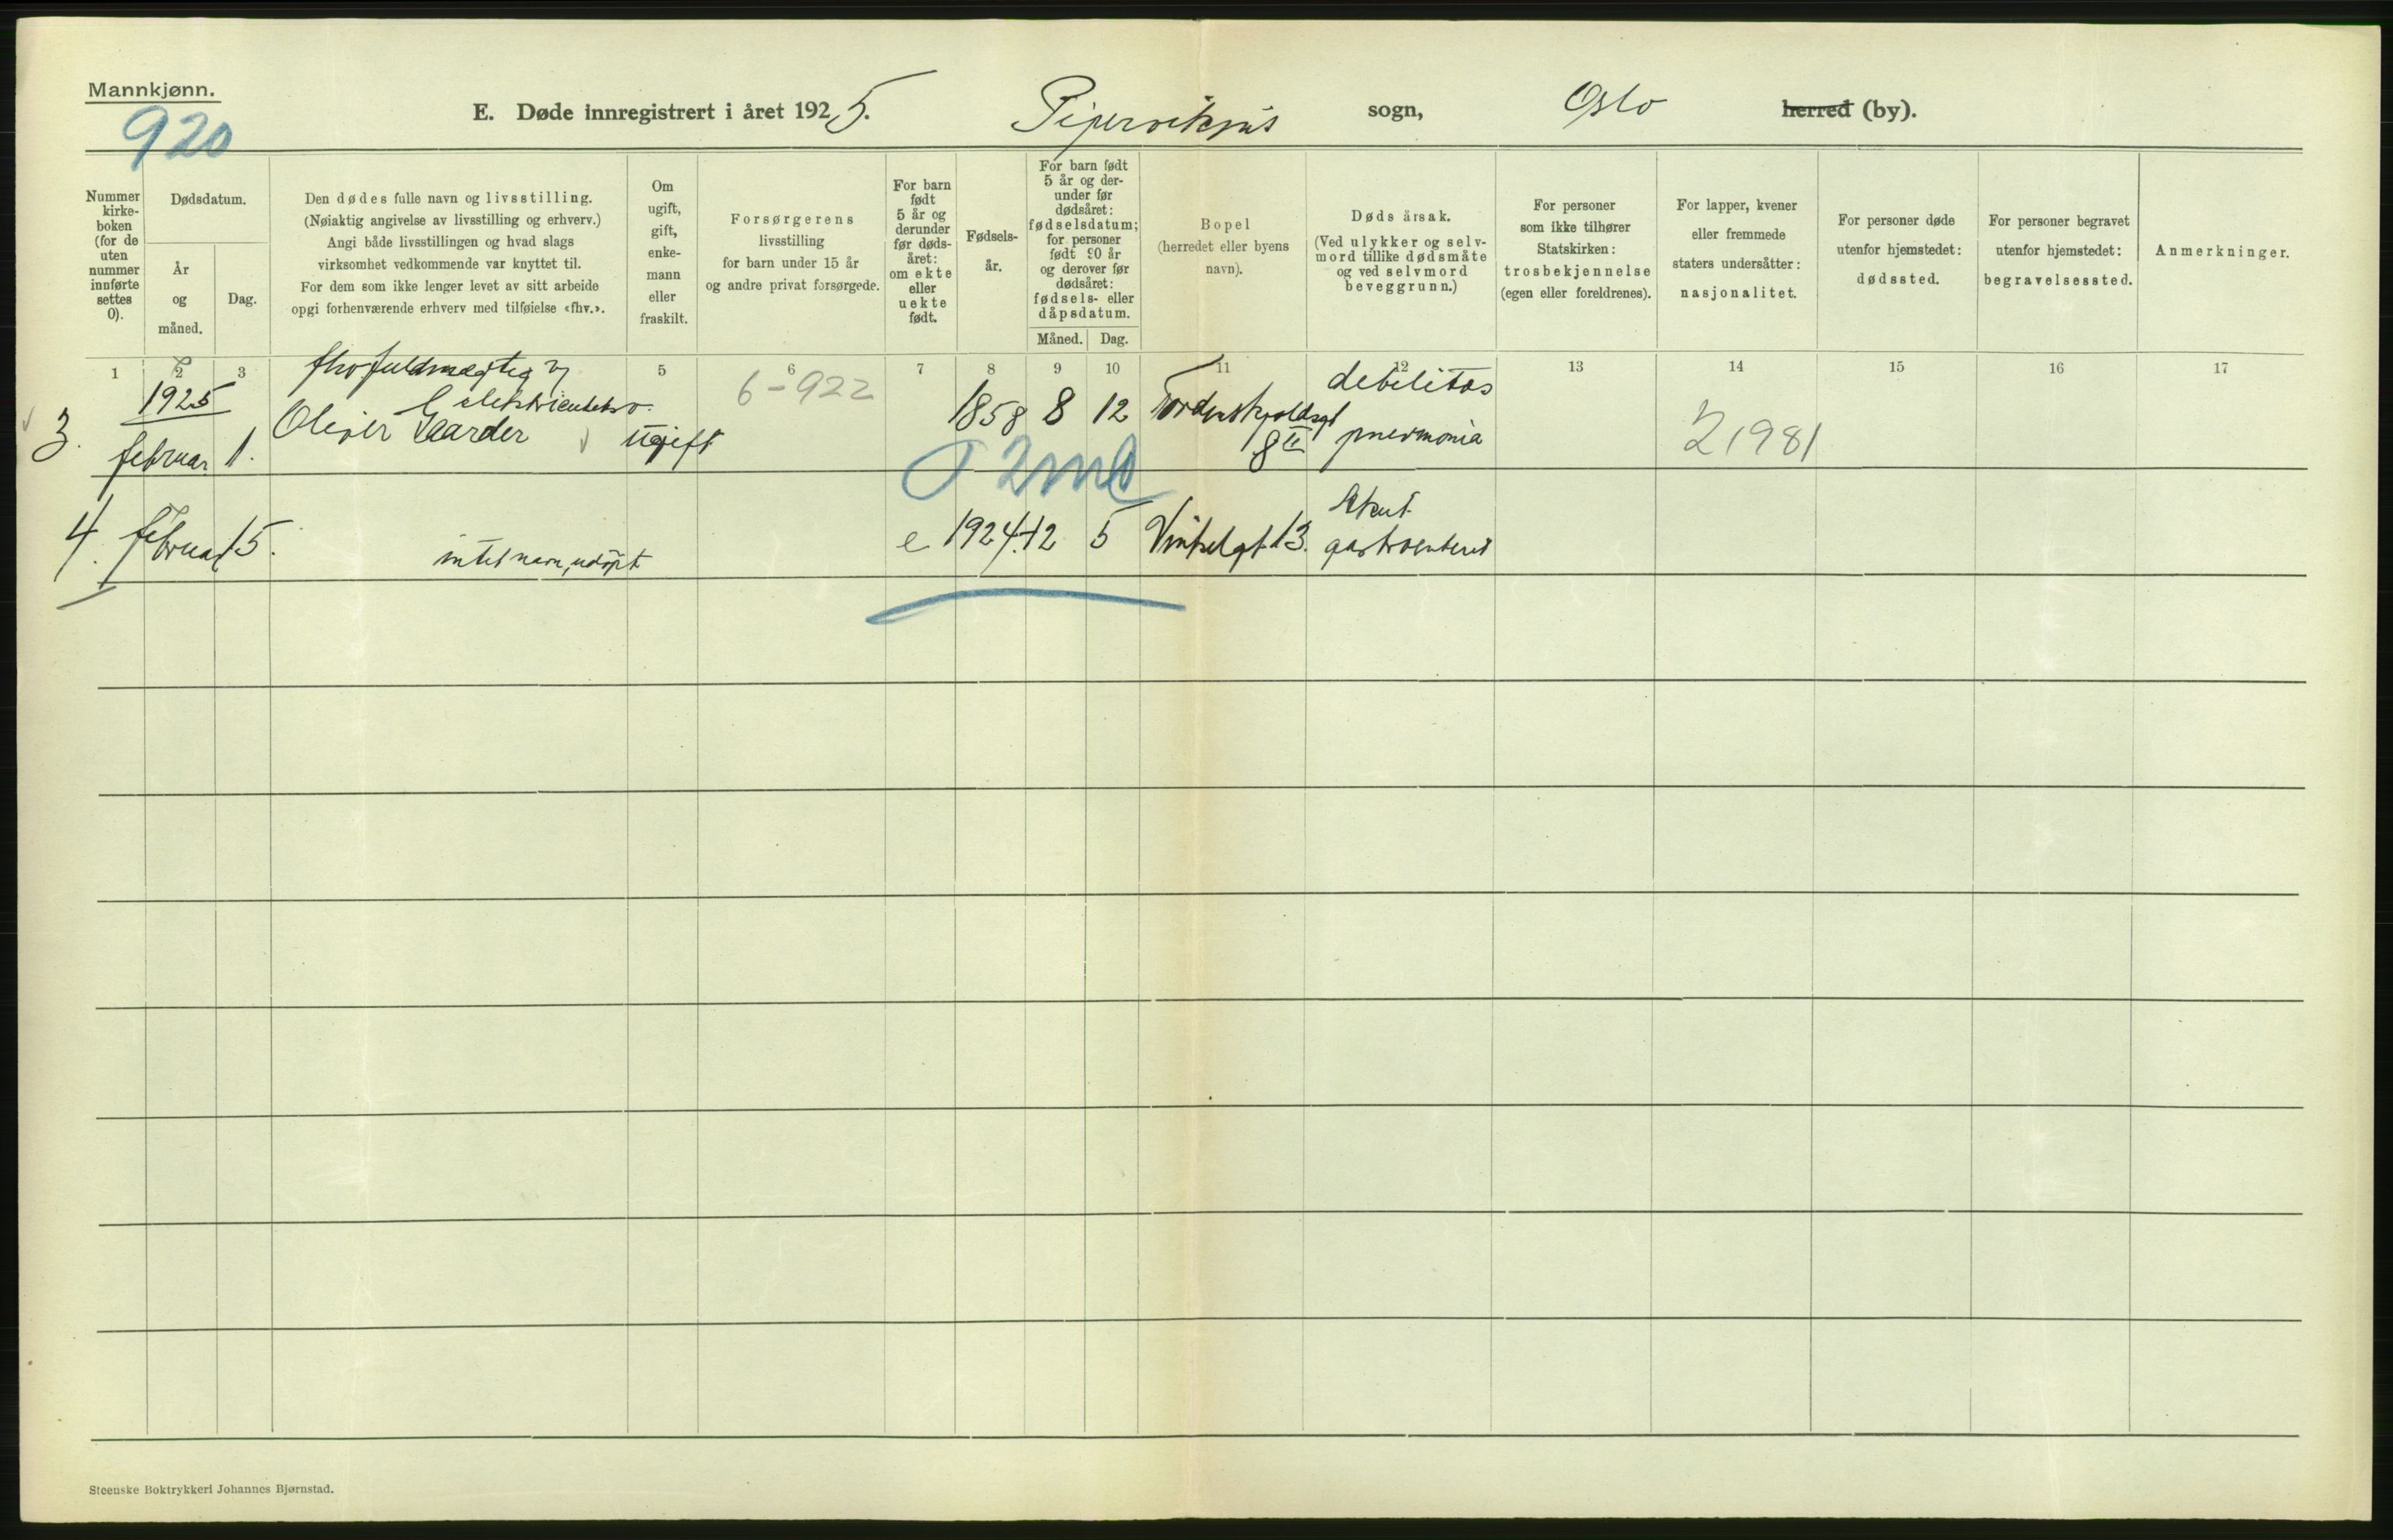 Mannkjønn.
920
E. Døde innregistrert i året 1925. Piperviksens sogn, Oslo herred (by).
Nummer kirke-boken (for de uten nummer innførte settes 0).
Dødsdatum.
År og måned.
Dag.
Den dødes fulle navn og livsstilling.
(Nøiaktig angivelse av livsstilling og erhverv.)
Angi både livsstillingen og hvad slags
virksomhet vedkommende var knyttet til.
For dem som ikke lenger levet av sitt arbeide
opgi forhenværende erhverv med tilføielse «fhv.».
Om ugift, gift, enke-mann eller fraskilt.
Forsørgerens
livsstilling
for barn under 15 år
og andre privat forsørgede.
For barn født 5 år og derunder før døds-året: om ekte eller uekte født.
Fødsels-år.
For barn født 5 år og der-under før dødsåret: fødselsdatum; for personer født 90 år og derover før dødsåret: fødsels- eller dåpsdatum.
Måned. Dag.
Bopel
(herredet eller byens
navn).
Dødsårsak.
(Ved ulykker og selv-
mord tillike dødsmåte
og ved selvmord
beveggrunn.)
For personer
som ikke tilhører
Statskirken:
trosbekjennelse
(egen eller foreldrenes).
For lapper, kvener
eller fremmede
staters undersåtter:
nasjonalitet.
For personer døde
utenfor hjemstedet:
dødssted.
For personer begravet
utenfor hjemstedet:
begravelsessted.
Anmerkninger.
1 2 3 5 6 7 8 9 10 11 12 13 14 15 16 17
fhv fuldmægtig v
1925 elektricitetsv. 6-922 1858 8 12 Tordenskjoldsgt debilitas
3. februar 1. Oliver Gaarder ugift 8 II pneumonia 21981
2 m
Akut
4. februar 15. intet navn, udøpt e 1924 12 5 Vinkelgt 13. gastroenterit
Steenske Boktrykkeri Johannes Bjørnstad.